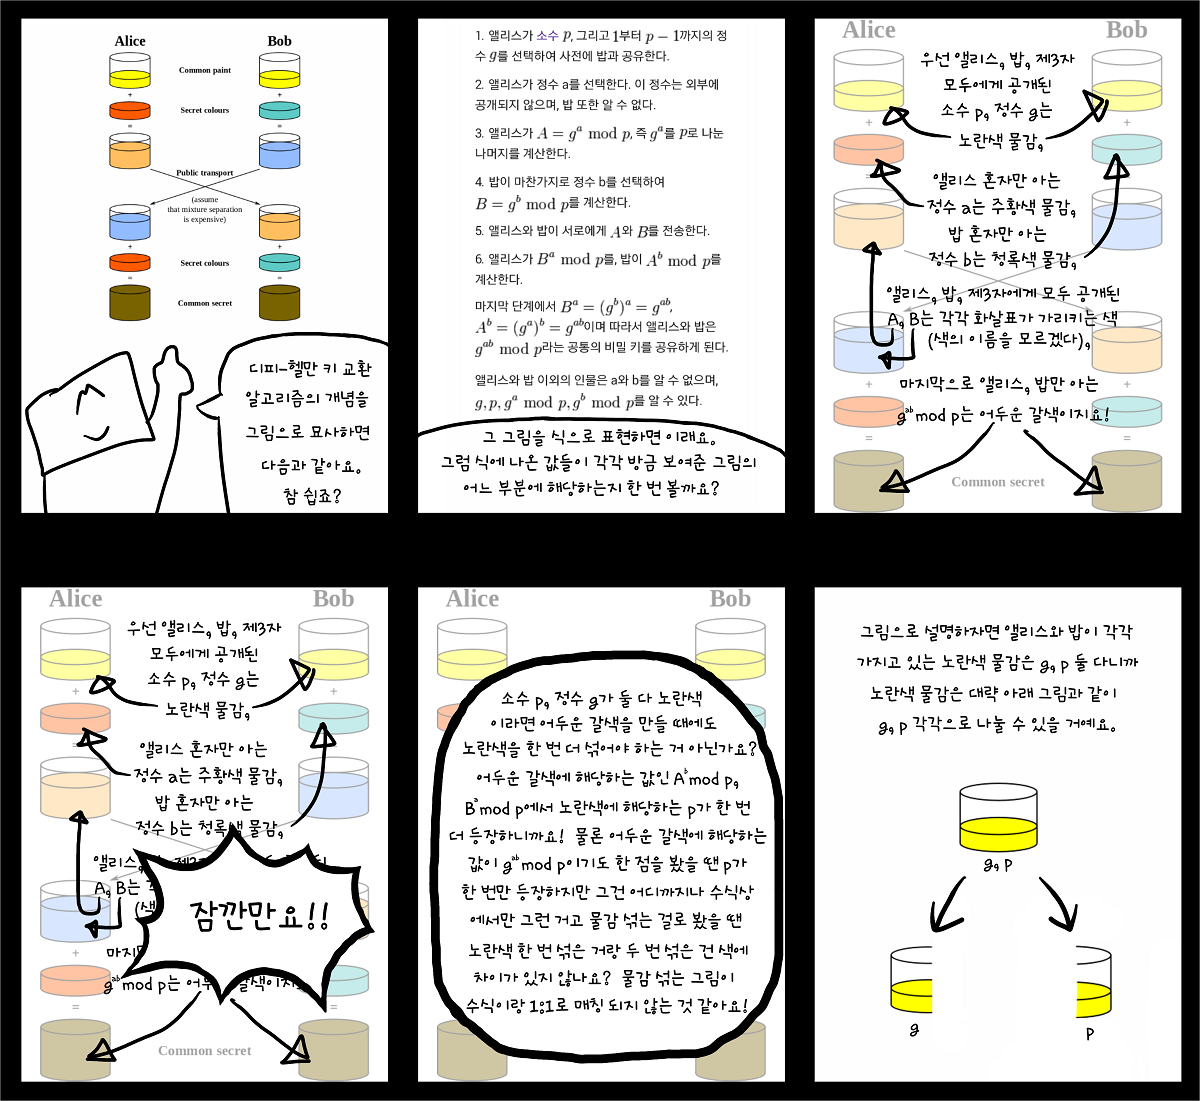 Alice
Bob
Common paint
+
+
Secret colours
=
=
Public transport
(assume
that mixture separation
is expensive)
+
+
Secret colours
=
=
Common secret
디피-헬만 키 교환
알고리즘의 개념을
그림으로 묘사하면
다음과 같아요.
참 쉽죠?
1. 앨리스가 소수 p, 그리고 1부터 p − 1까지의 정
수 g를 선택하여 사전에 밥과 공유한다.
2. 앨리스가 정수 a를 선택한다. 이 정수는 외부에
공개되지 않으며, 밥 또한 알 수 없다.
3. 앨리스가 A = g^a mod p, 즉 g^a를 p로 나눈
나머지를 계산한다.
4. 밥이 마찬가지로 정수 b를 선택하여
B = g^b mod p를 계산한다.
5. 앨리스와 밥이 서로에게 A와 B를 전송한다.
6. 앨리스가 B^a mod p를, 밥이 A^b mod p를
계산한다.
마지막 단계에서 B^a = (g^b)^a = g^ab,
A^b = (g^a)^b = g^ab이며 따라서 앨리스와 밥은
g^ab mod p라는 공통의 비밀 키를 공유하게 된다.
앨리스와 밥 이외의 인물은 a와 b를 알 수 없으며,
g, p, g^a mod p, g^b mod p를 알 수 있다.
그 그림을 식으로 표현하면 이래요.
그럼 식에 나온 값들이 각각 방금 보여준 그림의
어느 부분에 해당하는지 한 번 볼까요?
Alice
Bob
우선 앨리스, 밥, 제3자
모두에게 공개된
소수 p, 정수 g는
노란색 물감,
+
+
앨리스 혼자만 아는
정수 a는 주황색 물감,
밥 혼자만 아는
정수 b는 청록색 물감,
앨리스, 밥, 제3자에게 모두 공개된
A, B는 각각 화살표가 가리키는 색
(색의 이름을 모르겠다),
마지막으로 앨리스, 밥만 아는
g^ab mod p는 어두운 갈색이지요!
+
+
=
=
Common secret
Alice
Bob
우선 앨리스, 밥, 제3자
모두에게 공개된
소수 p, 정수 g는
노란색 물감,
+
+
앨리스 혼자만 아는
정수 a는 주황색 물감,
밥 혼자만 아는
정수 b는 청록색 물감,
앨리스,
A, B는
(색
마지
g^ab mod p는 어두
갈색이지
잠깐만요!!
+
=
=
Common secret
Alice
Bob
소수 p, 정수 g가 둘 다 노란색
이라면 어두운 갈색을 만들 때에도
노란색을 한 번 더 섞어야 하는 거 아닌가요?
어두운 갈색에 해당하는 값인 A^b mod p,
B^a mod p에서 노란색에 해당하는 p가 한 번
더 등장하니까요! 물론 어두운 갈색에 해당하는
값이 g^ab mod p이기도 한 점을 봤을 땐 p가
한 번만 등장하지만 그건 어디까지나 수식상
에서만 그런 거고 물감 섞는 걸로 봤을 땐
노란색 한 번 섞은 거랑 두 번 섞은 건 색에
차이가 있지 않나요? 물감 섞는 그림이
수식이랑 1:1로 매칭 되지 않는 것 같아요!
그림으로 설명하자면 앨리스와 밥이 각각
가지고 있는 노란색 물감은 g, p 둘 다니까
노란색 물감은 대략 아래 그림과 같이
g, p 각각으로 나눌 수 있을 거예요.
g, p
g
p